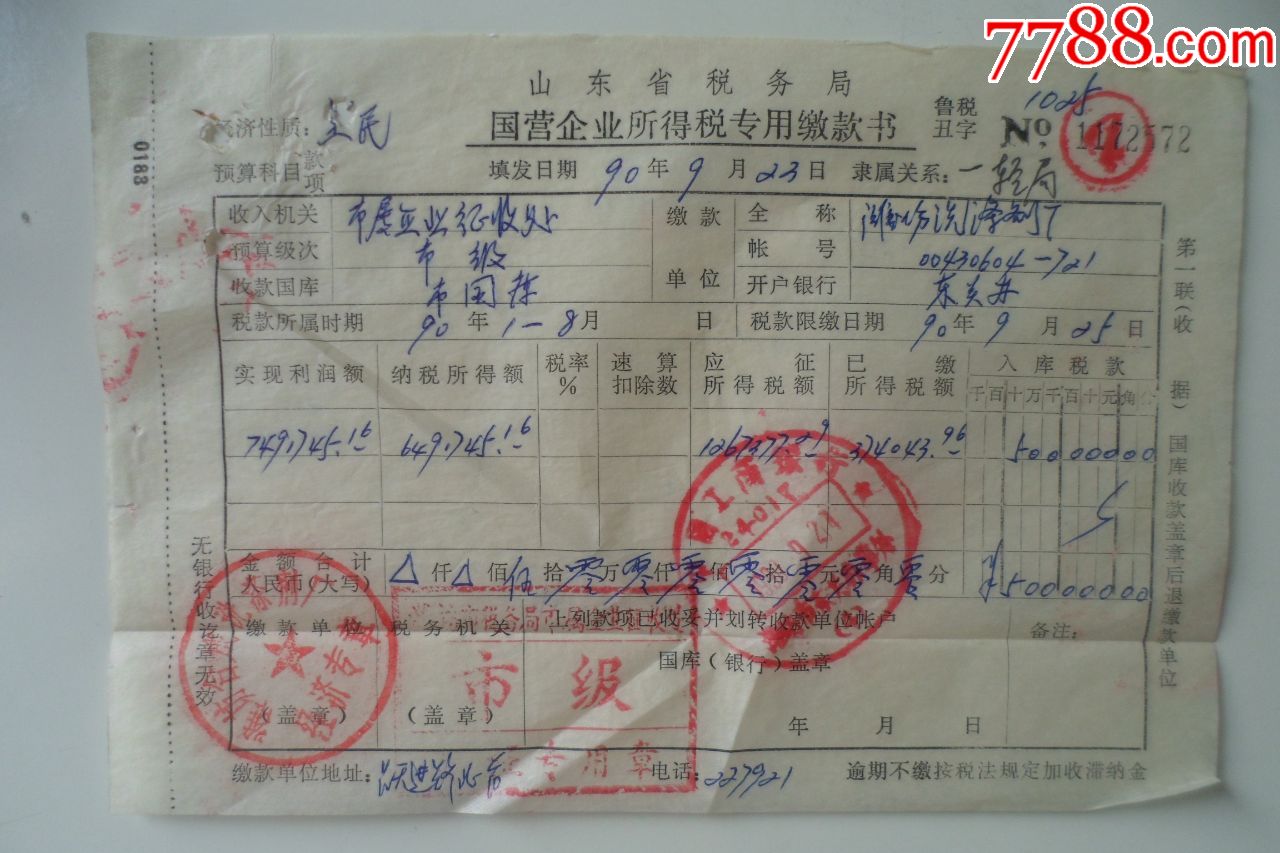 7788.com
山东省税务局
国营企业所得税专用缴款书
鲁税
丑字
1025
No. 1172572
0183
经济性质：全民
预算科目 款 项
填发日期 90年9月23日
隶属关系：一轻局
收入机关 市属企业征收处
缴款 全称 潍坊洗涤剂厂
预算级次 市级
单位 帐号 00430604-721
收款国库 市国库
开户银行
税款所属时期 90年1-8月 日
税款限缴日期 90年9月25日
实现利润额 纳税所得额 税率% 速算扣除数 应征所得税额 已缴所得税额 入库税款
千百十万千百十元角分
7491745.16 6491745.16 1267377.29 374043.96 50000000
金额合计
人民币(大写) 仟 佰伍拾零万零仟零佰零拾零元零角零分 ¥50000000
缴款单位
(盖章)
税务机关
(盖章)
上列款项已收妥并划转收款单位帐户
国库(银行)盖章
年 月 日
备注：
市级
专用章
经济专章
缴款单位地址：跃进路北首
电话：227921
逾期不缴按税法规定加收滞纳金
无银行收讫章无效
第一联(收据)国库收款盖章后退缴款单位